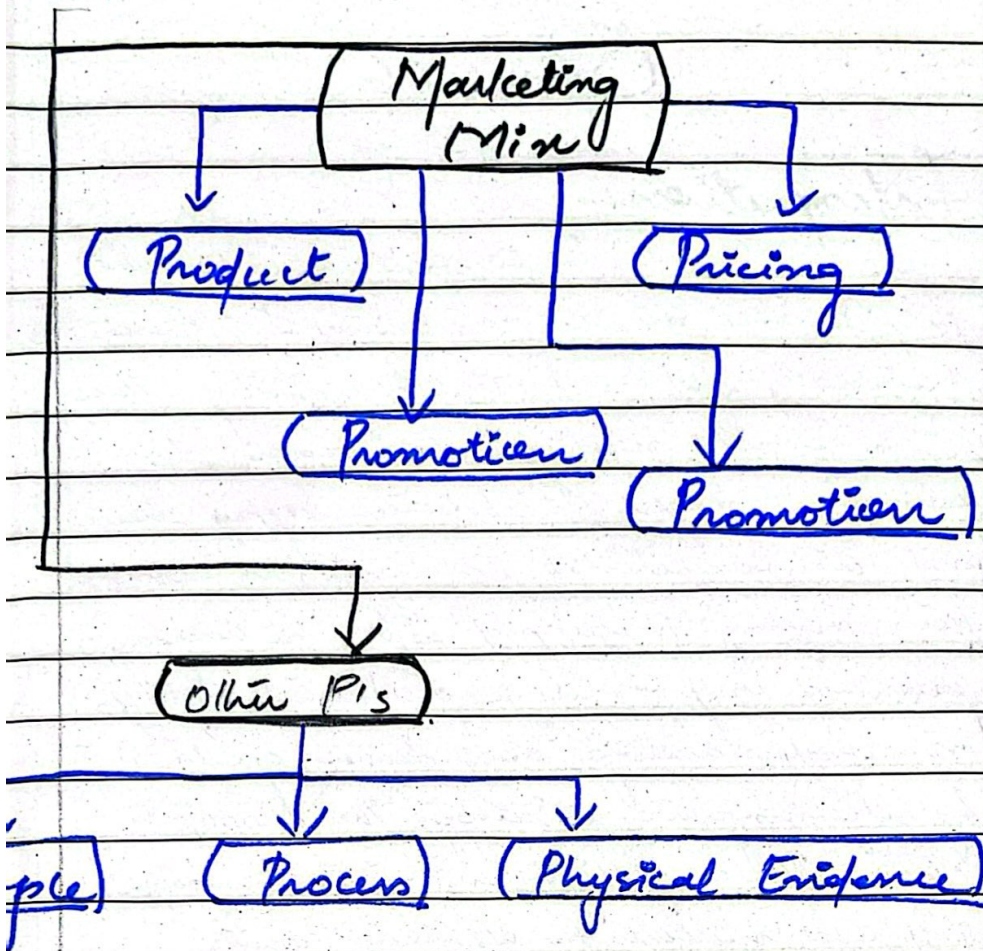 Marketing
Mix
Product
Pricing
Promotion
Promotion
Other P's
ple
Process
Physical Evidence